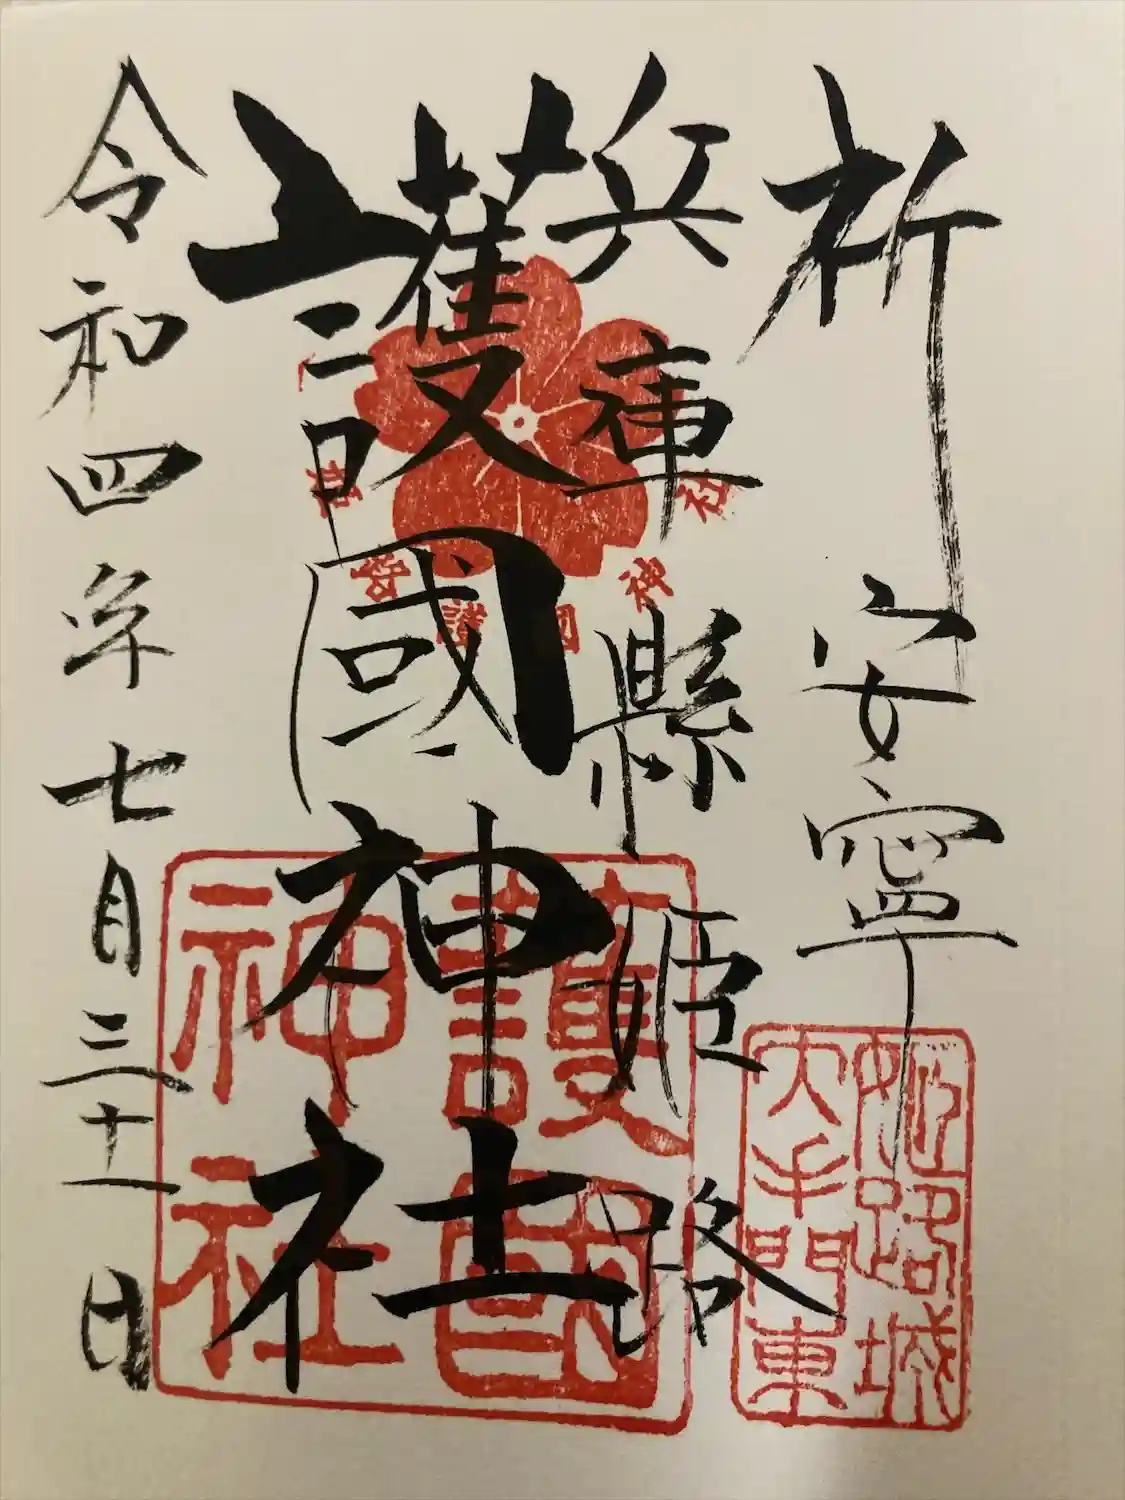 祈 安寧
兵庫縣姫路
護國神社
令和四年七月三十一日
姫路城
大手門東
護國
神社